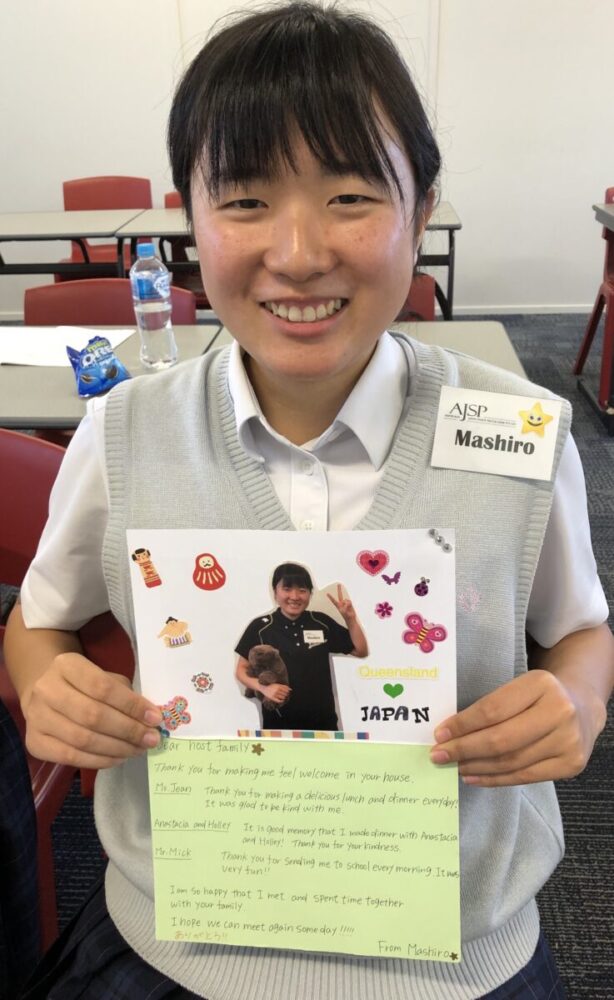 OREO
AJSP
Mashiro
Queensland
JAPAN
Dear host family
Thank you for making me feel welcome in your house.
Ms. Jean Thank you for making a delicious lunch and dinner everyday!
It was glad to be kind with me.
Anastacia and Holley It is good memory that I made dinner with Anastacia
and Holley! Thank you for your kindness.
Mr. Mick Thank you for sending me to school every morning. It was
very fun!!
I am so happy that I met and spent time together
with your family
I hope we can meet again someday!!!!!
ありがとう!!
From Mashiro